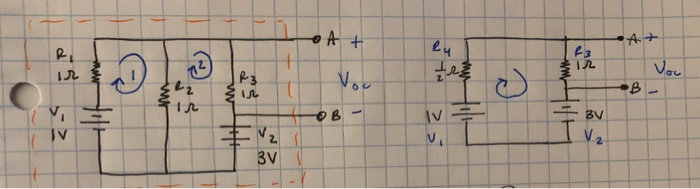 A +
R1
1Ω
1
2
R2
1Ω
R3
1Ω
Voc
V1
1V
B -
V2
3V
R4
1/2 Ω
R3
1Ω
A +
Voc
B -
1V
V1
3V
V2